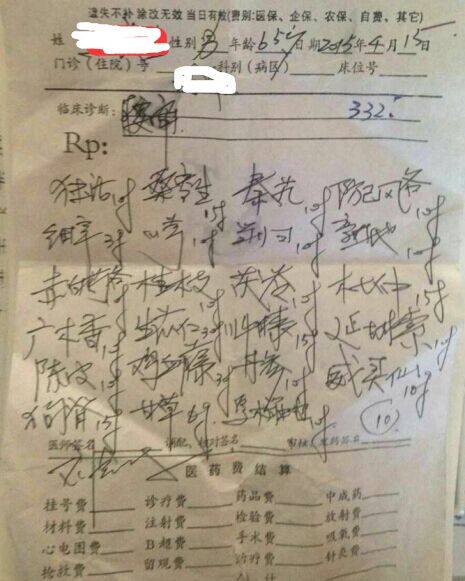 遗失不补 涂改无效 当日有效(费别:医保、企保、农保、自费、其它)
姓 性别 男 年龄 65岁 日期 2015年4月15日
门诊(住院)号 科别(病区) 床位号
临床诊断: 332.
Rp:
独活10g 桑寄生15g 秦艽10g 防己风各10g
细辛3g 川芎10g 当归10g 熟地10g
赤白芍各10g 桂枝10g 茯苓10g 杜仲15g
广木香10g 生苡仁30g 川牛膝15g 延胡索10g
陈皮10g 鸡血藤30g 丹参10g 威灵仙10g
狗脊15g 甘草6g (10)
医师签名 调配、核对签名 审核、发药签名
医药费结算
挂号费 诊疗费 药品费 中成药
材料费 注射费 检验费 放射费
心电图费 B超费 手术费 吸氧费
抢救费 留观费 治疗费 针灸费